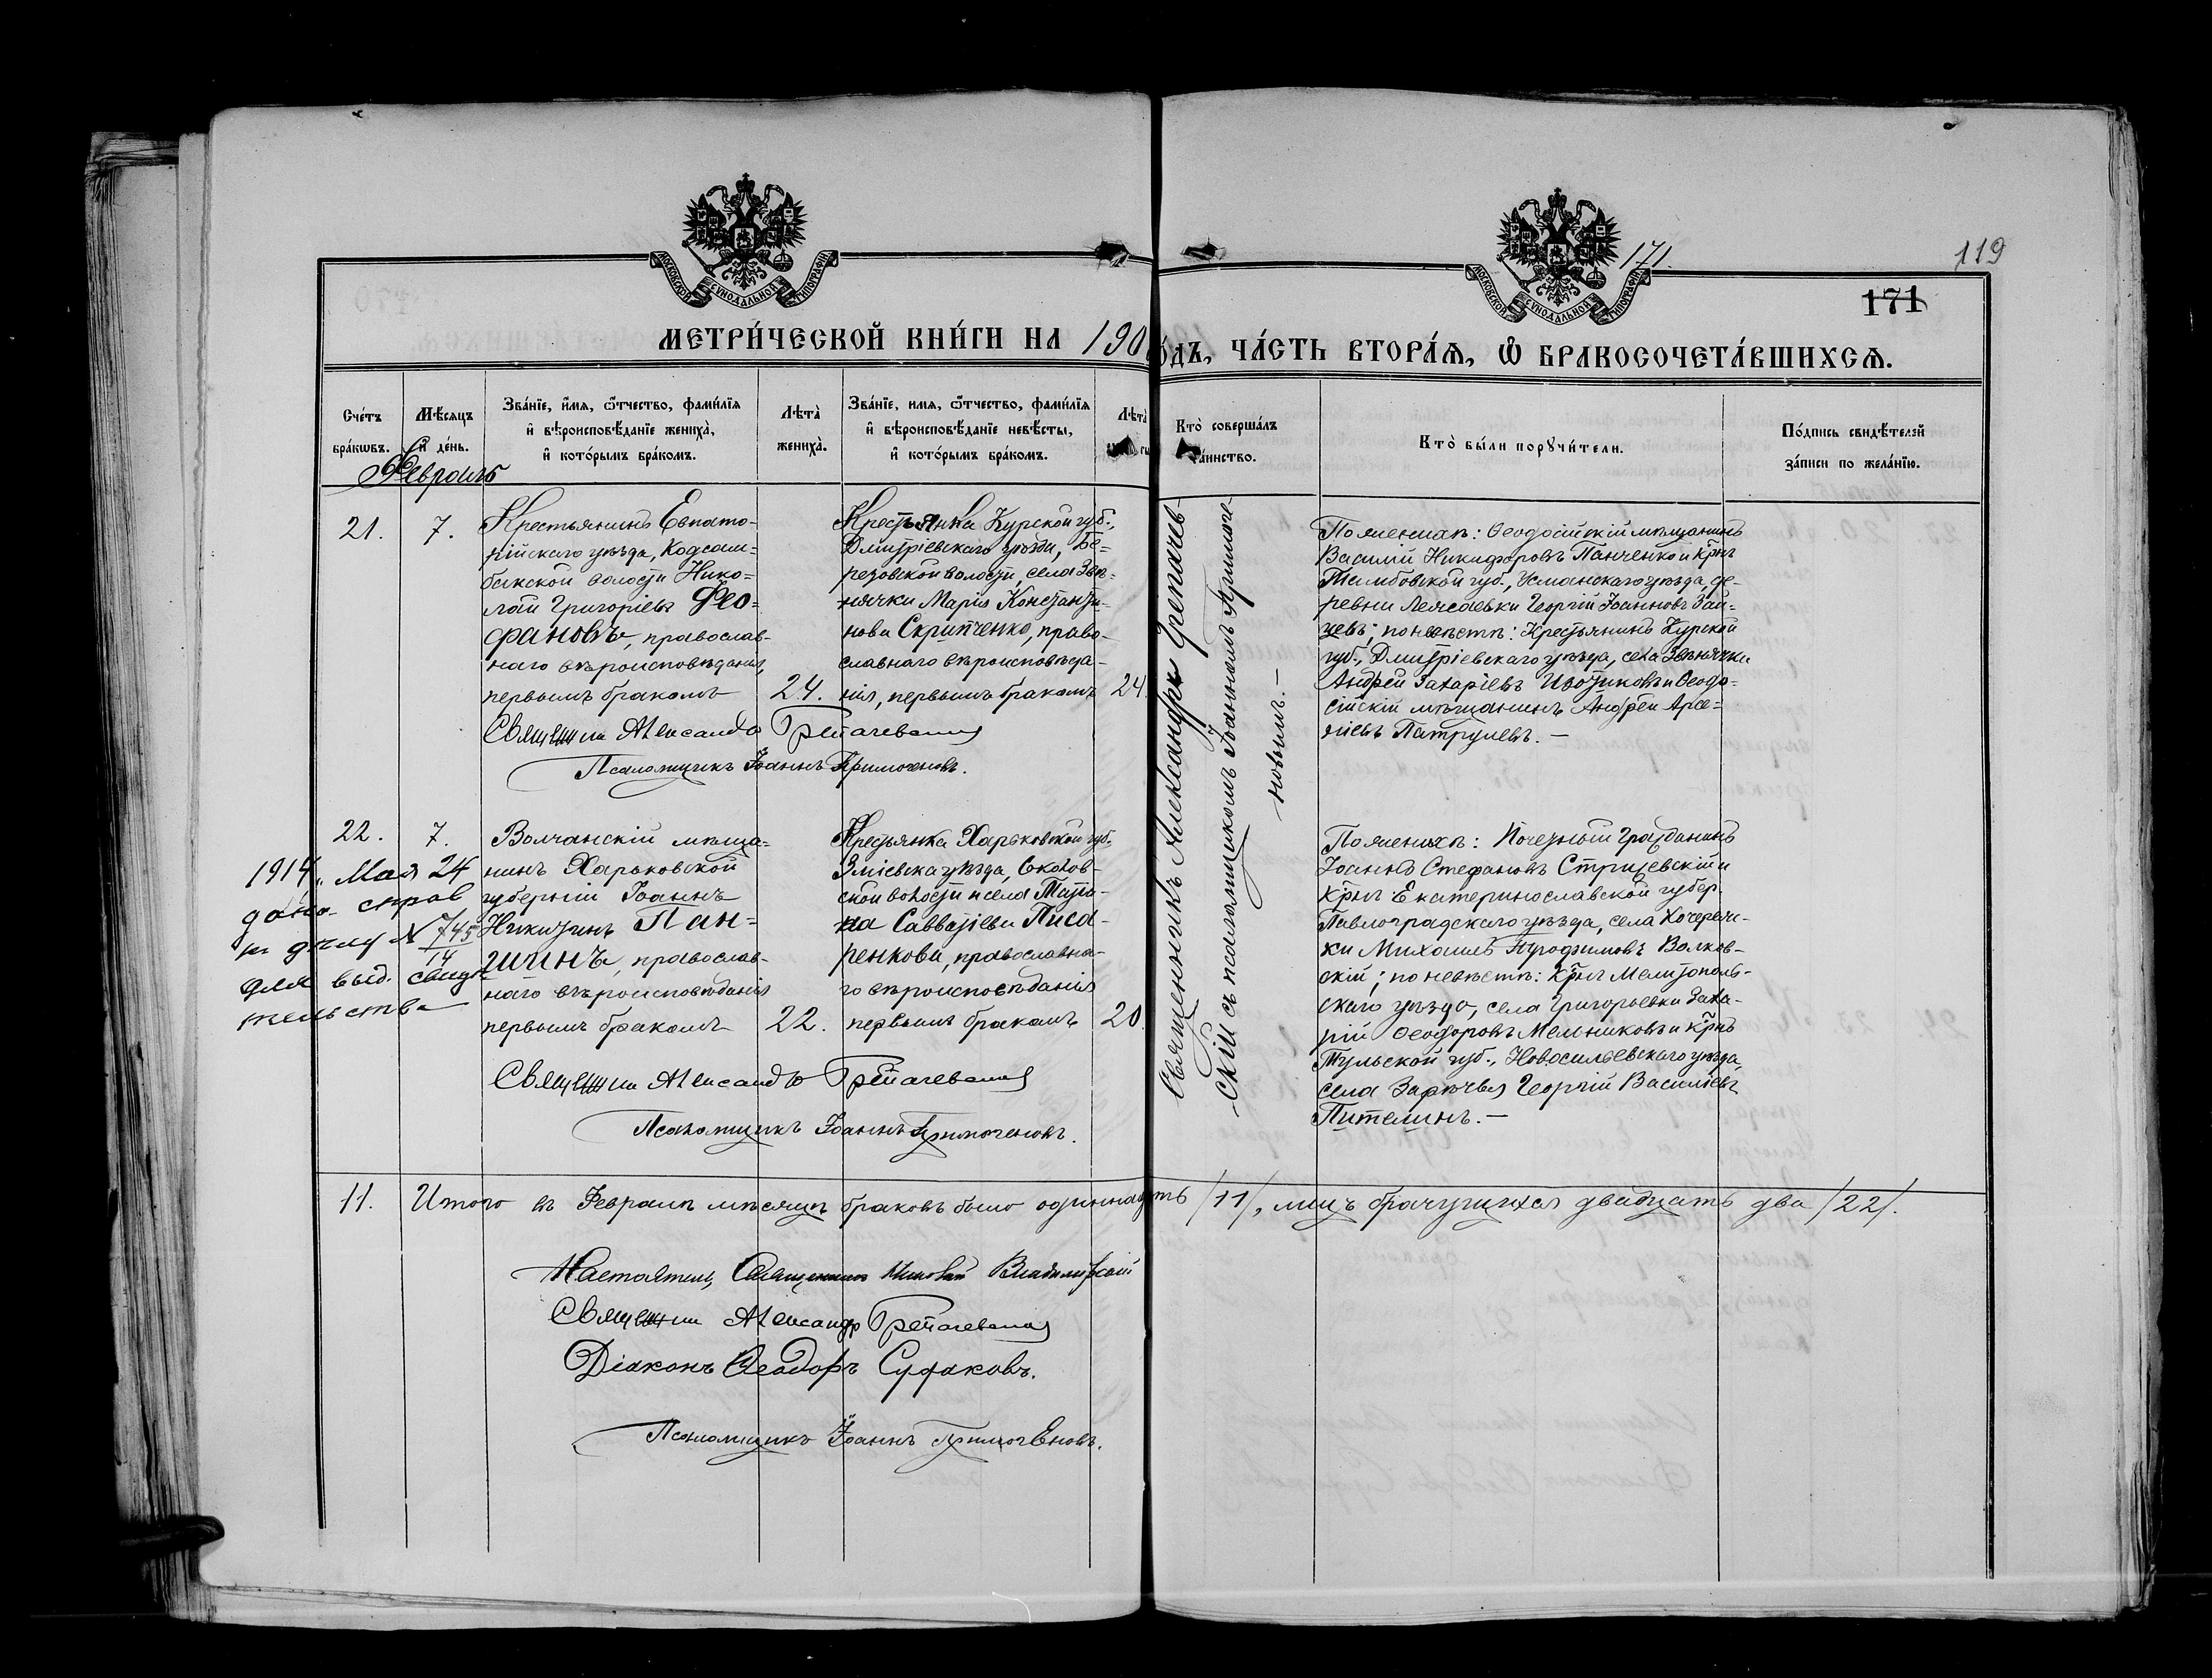 МОСКОВСКОЙ СѴНОДАЛЬНОЙ ТИПОГРАФІИ
МОСКОВСКОЙ СѴНОДАЛЬНОЙ ТИПОГРАФІИ
171.
119
171
МЕТРИ́ЧЕСКОЙ КНИ́ГИ НА 190
О́ДЪ, ЧА́СТЬ ВТОРА́Я, Ѽ БРАКОСОЧЕТА́ВШИХСѦ.
Сче́тъ
бра́кѡвъ.
Мѣ́сѧцъ
и҆ де́нь.
Зва́нїе, и҆́мѧ, ѻ҆́тчество, фами́лїѧ
и҆ вѣроисповѣ́данїе жениха̀,
и҆ кото́рымъ бра́комъ.
Лѣта̀
жениха̀.
Зва́нїе, и҆́мѧ, ѻ҆́тчество, фами́лїѧ
и҆ вѣроисповѣ́данїе невѣ́сты,
и҆ кото́рымъ бра́комъ.
Лѣта̀
Кто̀ соверша́лъ
та́инство.
Кто̀ бы́ли порꙋчи́тели.
По́дпись свидѣ́телей
за́писи по жела́нїю.
Февраль
21.
7.
Крестьянинъ Евпато-
рійскаго уѣзда, Ходжам=
бакской волости Нико=
лай Григоріевъ Фео=
фановъ, православ-
наго вѣроисповѣданія,
первымъ бракомъ
24.
Крестьянка Курской губ.,
Дмитріевскаго уѣзда, Бе=
резовской волости, села Звя-
нячки Марія Константи-
нова Скрипченко, право-
славнаго вѣроисповѣда-
нія, первымъ бракомъ
24
Священникъ Александръ Гретачев-
-скій съ псаломщикомъ Іоанномъ Примоге-
новымъ. —
По женихѣ: Ѳеодосійскій мѣщанинъ
Василій Никифоровъ Панченко и Крнъ
Тамбовской губ., Усманскаго уѣзда, де-
ревни Георгій Іоанновъ Зай-
цевъ; по невѣстѣ: Крестьянинъ Курской
губ., Дмитріевскаго уѣзда, села Звенячки
Андрей Захаріевъ и Ѳеодо-
сійскій мѣщанинъ Андрей Арсе-
ніевъ Патрулевъ. —
Священник Александр
Псаломщикъ Іоаннъ Примогеновъ.
22.
7.
Волчанскій мѣща-
нинъ Харьковской
губерніи Іоаннъ
Никитинъ Пан-
шинъ, православ-
наго вѣроисповѣданія
первымъ бракомъ
22.
Крестьянка Харьковской губ.
Зміевска уѣзда, Соколов-
ской волости и села Татья-
на Савватіева Писа-
ренкова, православна-
го вѣроисповѣданія
первымъ бракомъ
20.
По женихѣ: Почетный гражданинъ
Іоаннъ Стефановъ Стрижевскій и
Крнъ Екатеринославской губер.
Павлоградскаго уѣзда, села Кочереж-
ки Михаилъ Трофимовъ Волков-
скій; по невѣстѣ: Крнъ Мелитополь-
скаго уѣзда, села Григорьевки Заха-
рій Ѳеодоровъ Мельниковъ и Крнъ
Тульской губ., Новосильевскаго уѣзда,
села Зарѣчья Георгій Василіевъ
Пителинъ. —
1914, Мая 24
дана справ
к дѣлу № 745
14
для выд. свидѣ
тельства
Священник Александр
Псаломщикъ Іоаннъ Примогеновъ.
11.
Итого въ Февралѣ мѣсяцѣ браковъ было одиннадцать /11/, лицъ брачущихся двадцать два /22/.
Настоятель, Священникъ Николай Владимірскій
Священник Александр
Діаконъ Ѳеодоръ Судаковъ.
Псаломщикъ Іоаннъ Примогеновъ.